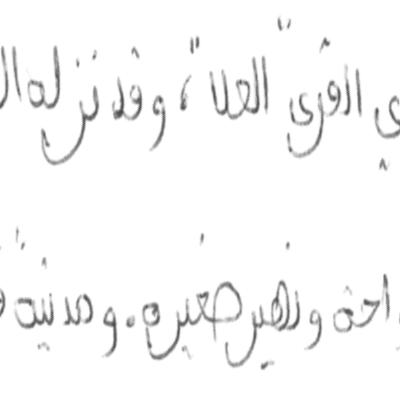 ي القرى "العلا"، وقد نزله ال
واحة ونهير صغيره. ومدينة